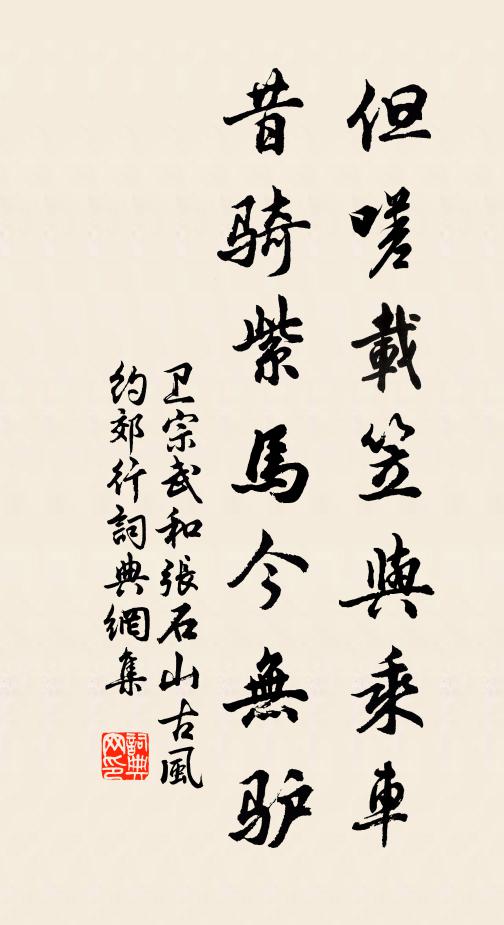 但嗟載笠與乘車
昔騎紫馬今無驴
卫宗武和張石山古風
約郊行詞典網集
詞典
网印